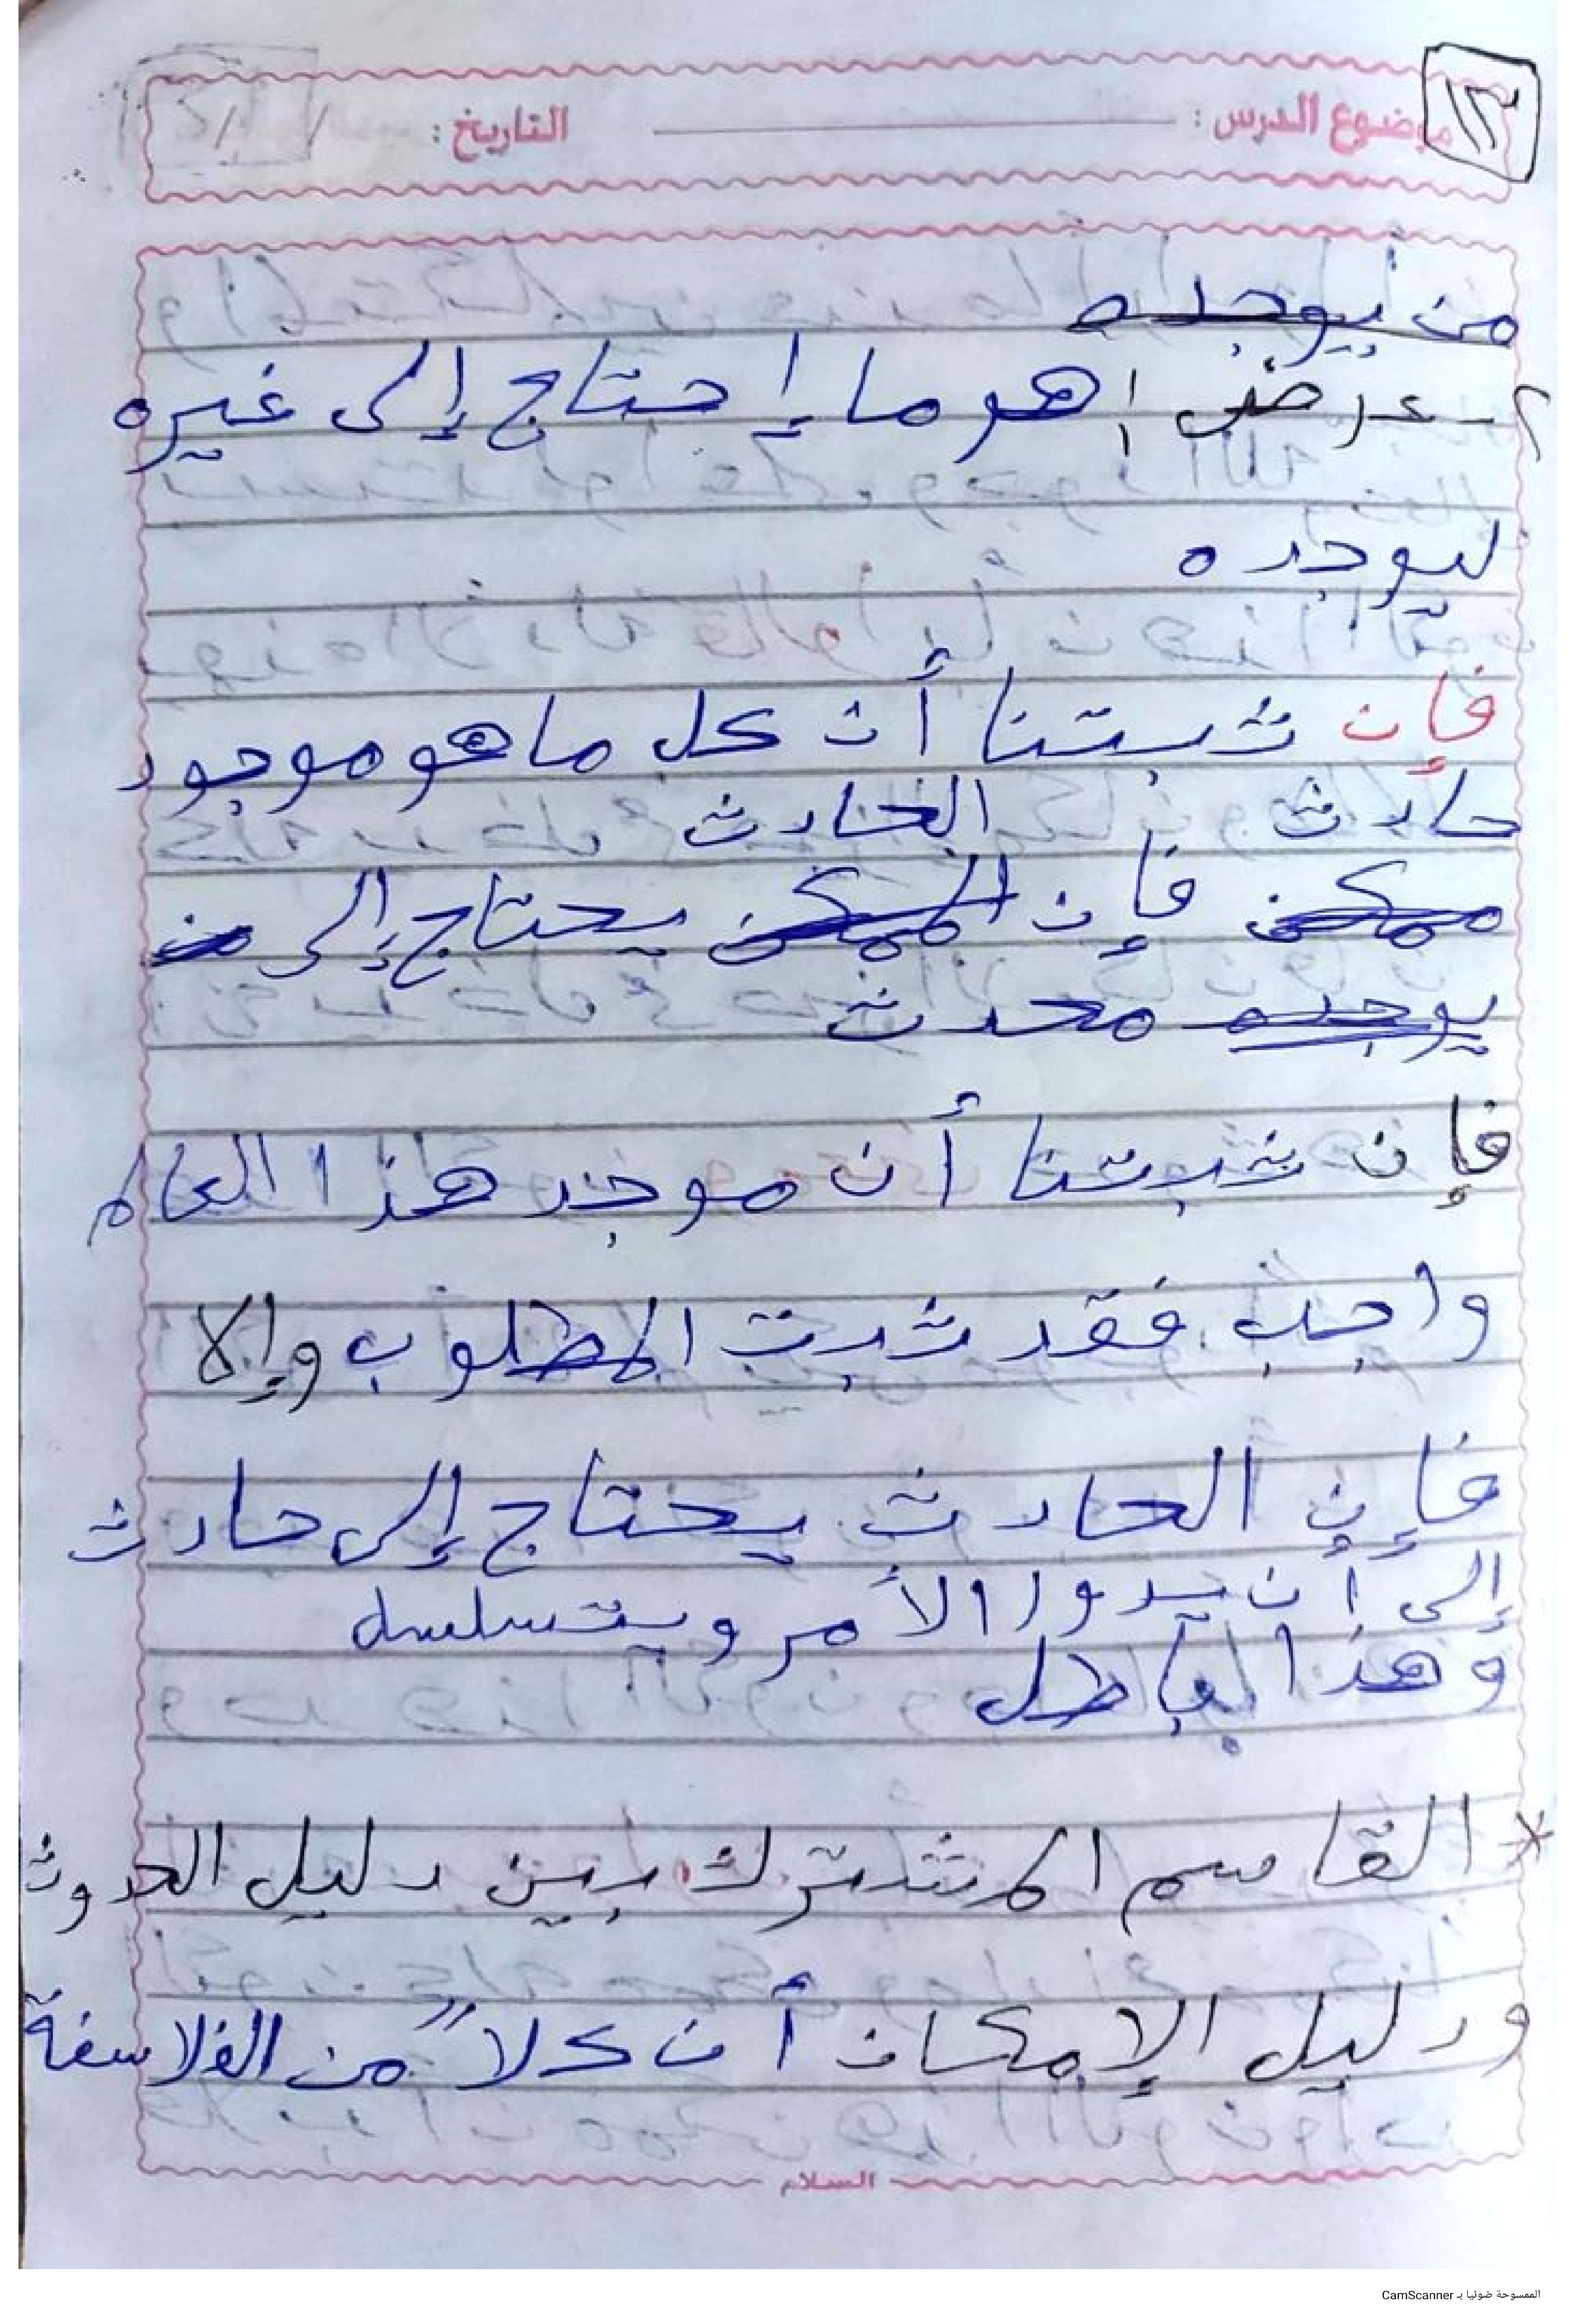 ١٢
موضوع الدرس : التاريخ : / /
من يوجده
٢- عرض : هو ما إحتاج إلى غيره
ليوجده
فإن ثبتنا أن كل ما هو موجود
حادث الحادث
ممكن فإن الممكن يحتاج إلى من
يوجده محدث
فإن ثبتنا أن موجد هذا العالم
واجب فقد ثبت المطلوب وإلا
فإن الحادث يحتاج إلى حادث
إلى أن يدوا الأمر ويتسلسل
وهذا باطل
* القاسم المشترك بين دليل الحدوث
ودليل الإمكان أن كلاً من الفلاسفة
السلام
الممسوحة ضوئيا بـ CamScanner